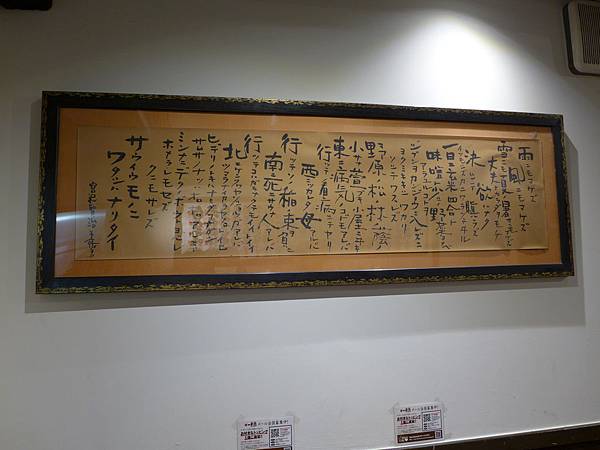 雨ニモマケズ
風ニモマケズ
雪ニモ夏ノ暑サニモマケズ
丈夫ナカラダヲモチ
慾ハナク
決シテ瞋ラズ
イツモシヅカニワラッテヰル
一日ニ玄米四合ト
味噌ト少シノ野菜ヲタベ
アラユルコトヲ
ジブンヲカンジョウニ入レズニ
ヨクミキキシワカリ
ソシテワスレズ
野原ノ松ノ林ノ蔭ノ
小サナ萱ブキノ小屋ニヰテ
東ニ病気ノコドモアレバ
行ッテ看病シテヤリ
西ニツカレタ母アレバ
行ッテソノ稲ノ束ヲ負ヒ
南ニ死ニサウナ人アレバ
行ッテコハガラナクテモイイトイヒ
北ニケンクヮヤソショウガアレバ
ツマラナイカラヤメロトイヒ
ヒデリノトキハナミダヲナガシ
ササノナツハオロオロアルキ
ミンナニデクノボートヨバレ
ホメラレモセズ
クニモサレズ
サウイウモノニ
ワタシハナリタイ
宮沢賢治